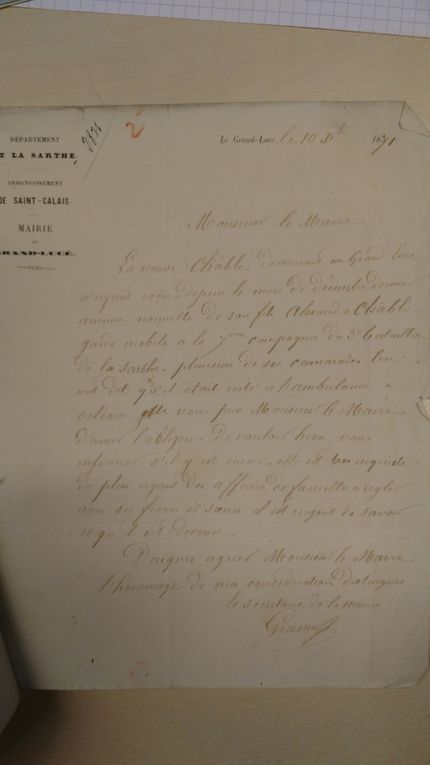 DÉPARTEMENT
E LA SARTHE.
ARRONDISSEMENT
DE SAINT-CALAIS
MAIRIE
DU
GRAND-LUCÉ.
2
Le Grand-Luce, le 10 Xbre 1871
Monsieur le Maire
La veuve Châble demeurant au Grand Luce
n'ayant reçu depuis le mois de décembre dernier
aucune nouvelle de son fils Alexandre Châble
garde mobile a la 7ème compagnie du 3e bataillon
de la sarthe. plusieurs de ses camarades
ont dit qu'il était resté a l'ambulance a
orleans elle vous prie Monsieur le Maire
d'avoir l'obligence de vouloir bien vous
informer s'il y est encore. elle est tres inquiete
de plus ayant des affaire de famille a regler
avec ses freres et sœurs il est urgent de savoir
ce qu'il est devenu.
Daignez agreer Monsieur le Maire
l'hommage de ma consideration distinguée
le secritaire de la mairie